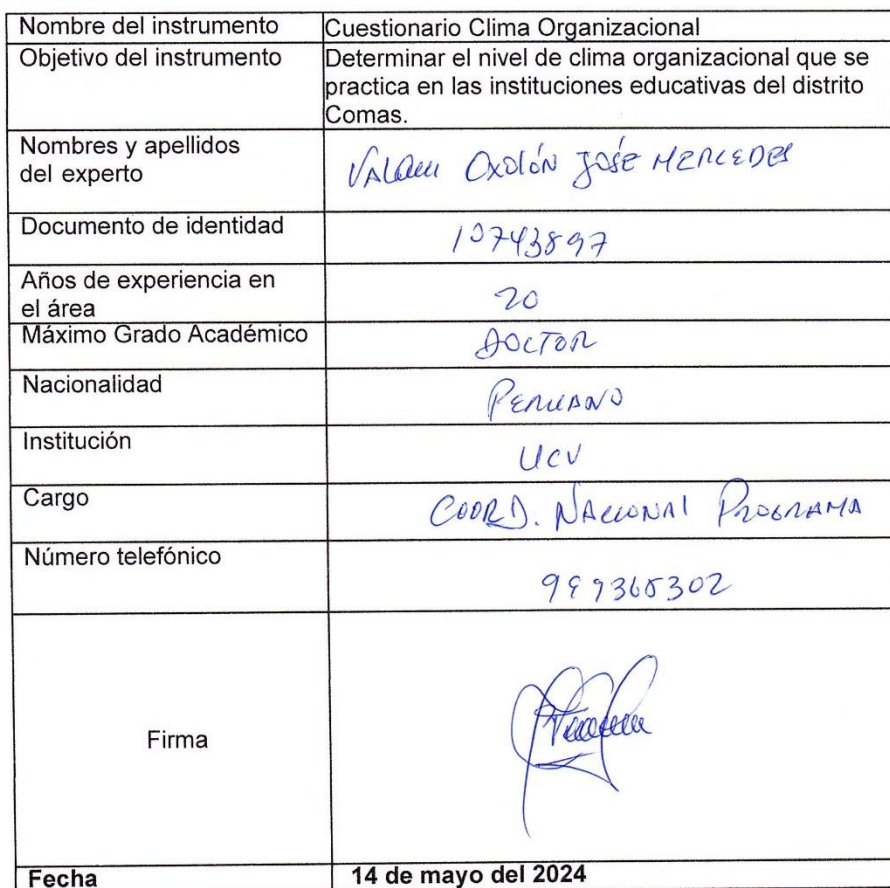 Nombre del instrumento Cuestionario Clima Organizacional
Objetivo del instrumento Determinar el nivel de clima organizacional que se
practica en las instituciones educativas del distrito
Comas.
Nombres y apellidos
del experto
JOSÉ MERCEDES
Documento de identidad 10743897
Años de experiencia en
el área
20
Máximo Grado Académico DOCTOR
Nacionalidad PERUANO
Institución UCV
Cargo COORD. NACIONAL PROGRAMA
Número telefónico
Firma
Fecha 14 de mayo del 2024